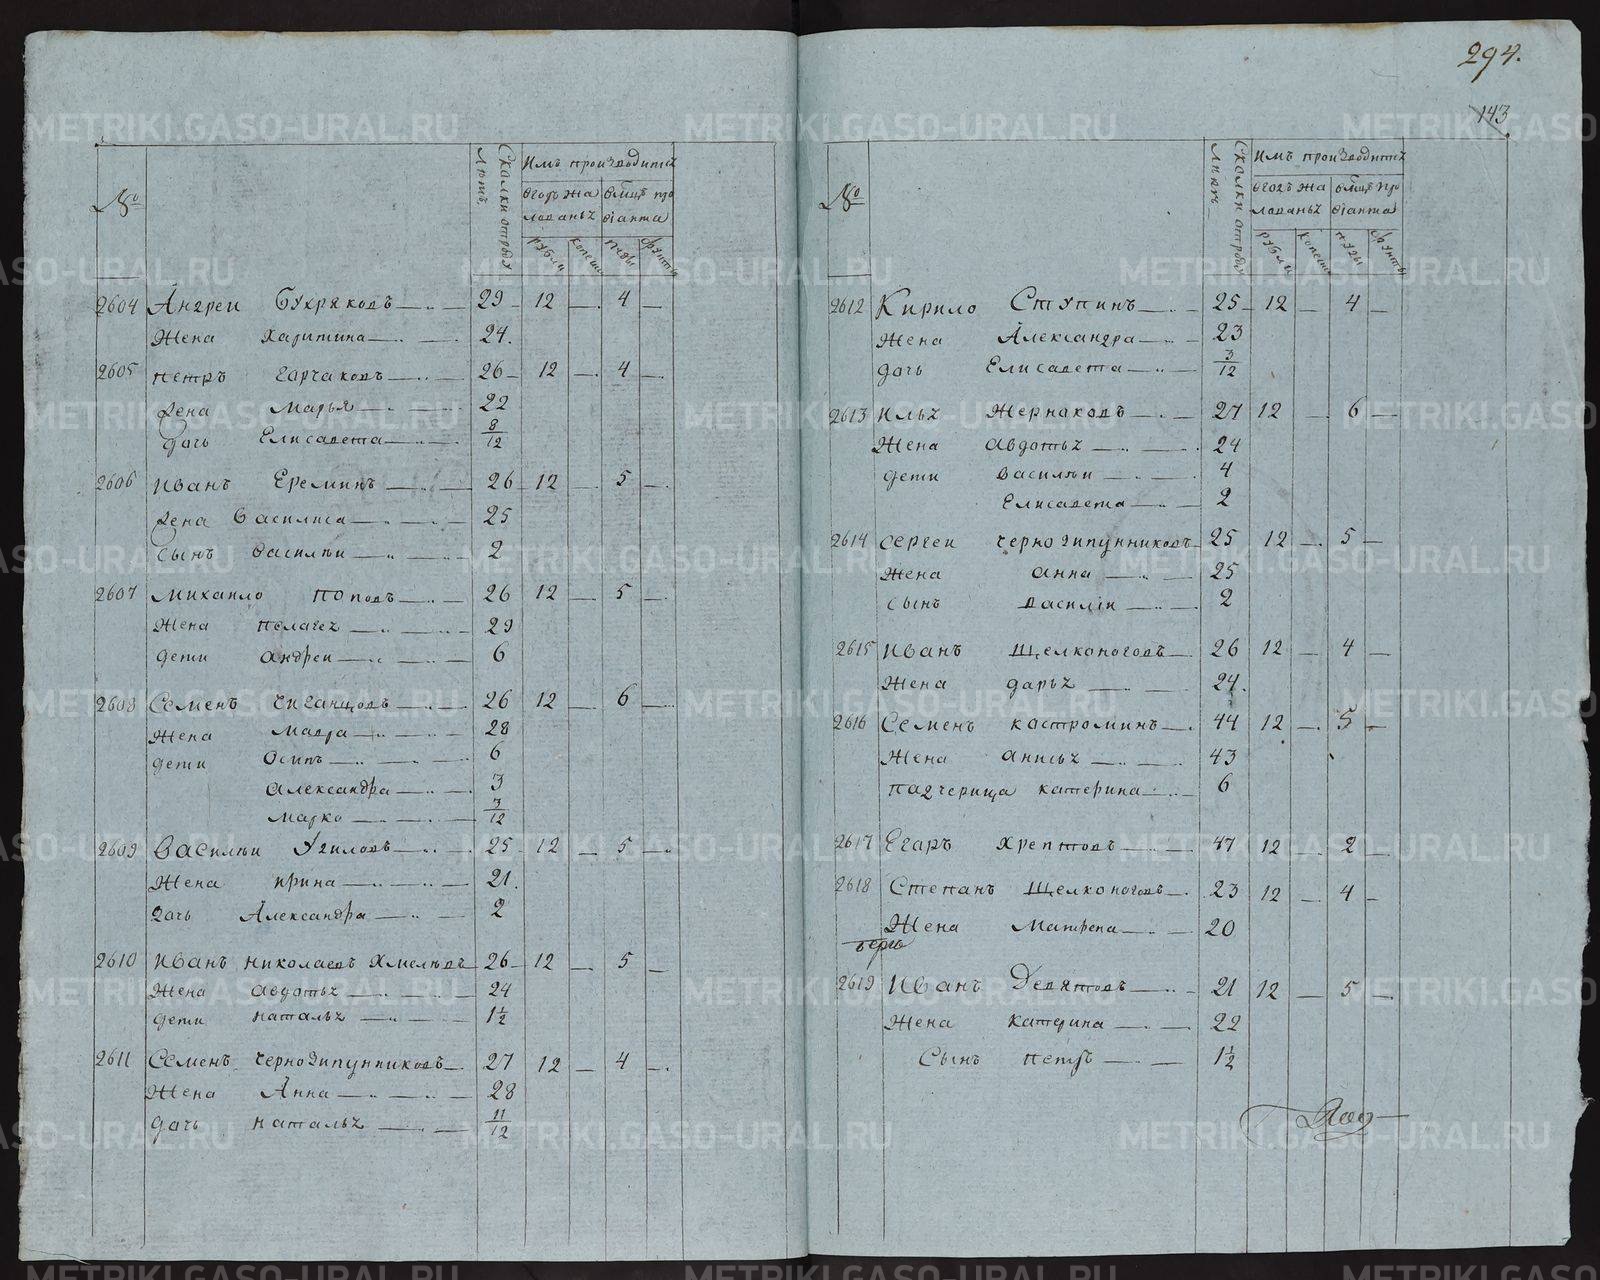 294.
143
№
Сколки отроду лѣтъ
Имъ производитца
въгодъ жа лованья
вмцъ про вианта
рубли
копеики
пуды
фунты
2604 Андреи Бухряковъ 29 12 — 4 —
Жена Харитина 24.
2605 петръ Горчаковъ 26 12 — 4 —
Жена Марья 22
дочь Елисавета 8/12
2606 Иванъ Ереминъ 26 12 — 5 —
Жена Василиса 25
сынъ василеи 2
2607 Михаило поповъ 26 12 — 5 —
Жена пелагея 29
дети андреи 6
2608 Семенъ Чиганцовъ 26 12 — 6 —
Жена Мавра 28
дети Осипъ 6
александра 3
Марко 3/12
2609 Василеи Угиловъ 25 12 — 5 —
Жена ирина 21.
дочь Александра 2
2610 Иванъ николаевъ Хмелевъ 26 12 — 5 —
Жена авдотья 24
дети наталья 1½
2611 Семенъ чернозипунниковъ 27 12 — 4 —
Жена Анна 28
дочь наталья 11/12
№
Сколки отроду лѣтъ
Имъ производитца
въгодъ жа лованья
вмцъ про вианта
рубли
копеики
пуды
фунты
2612 Кирило Ступинъ 25 12 — 4 —
Жена Александра 23
дочь Елисавета 3/12
2613 илья Жернаковъ 27 12 — 6 —
Жена авдотья 24
дети василеи 4
Елисавета 2
2614 сергеи чернозипунниковъ 25 12 — 5 —
Жена анна 25
сынъ василіи 2
2615 Иванъ Щелконоговъ 26 12 — 4 —
Жена дарья 24.
2616 Семенъ костроминъ 44 12 — 5 —
Жена анисья 43
падчерица катерина 6
2617 Егаръ Хрептовъ 47 12 — 2 —
2618 Степанъ Щелконоговъ 23 12 — 4 —
Жена Матрена 20
2619 Иванъ Девятовъ 21 12 — 5 —
Жена катерина 22
Сынъ петръ 1½